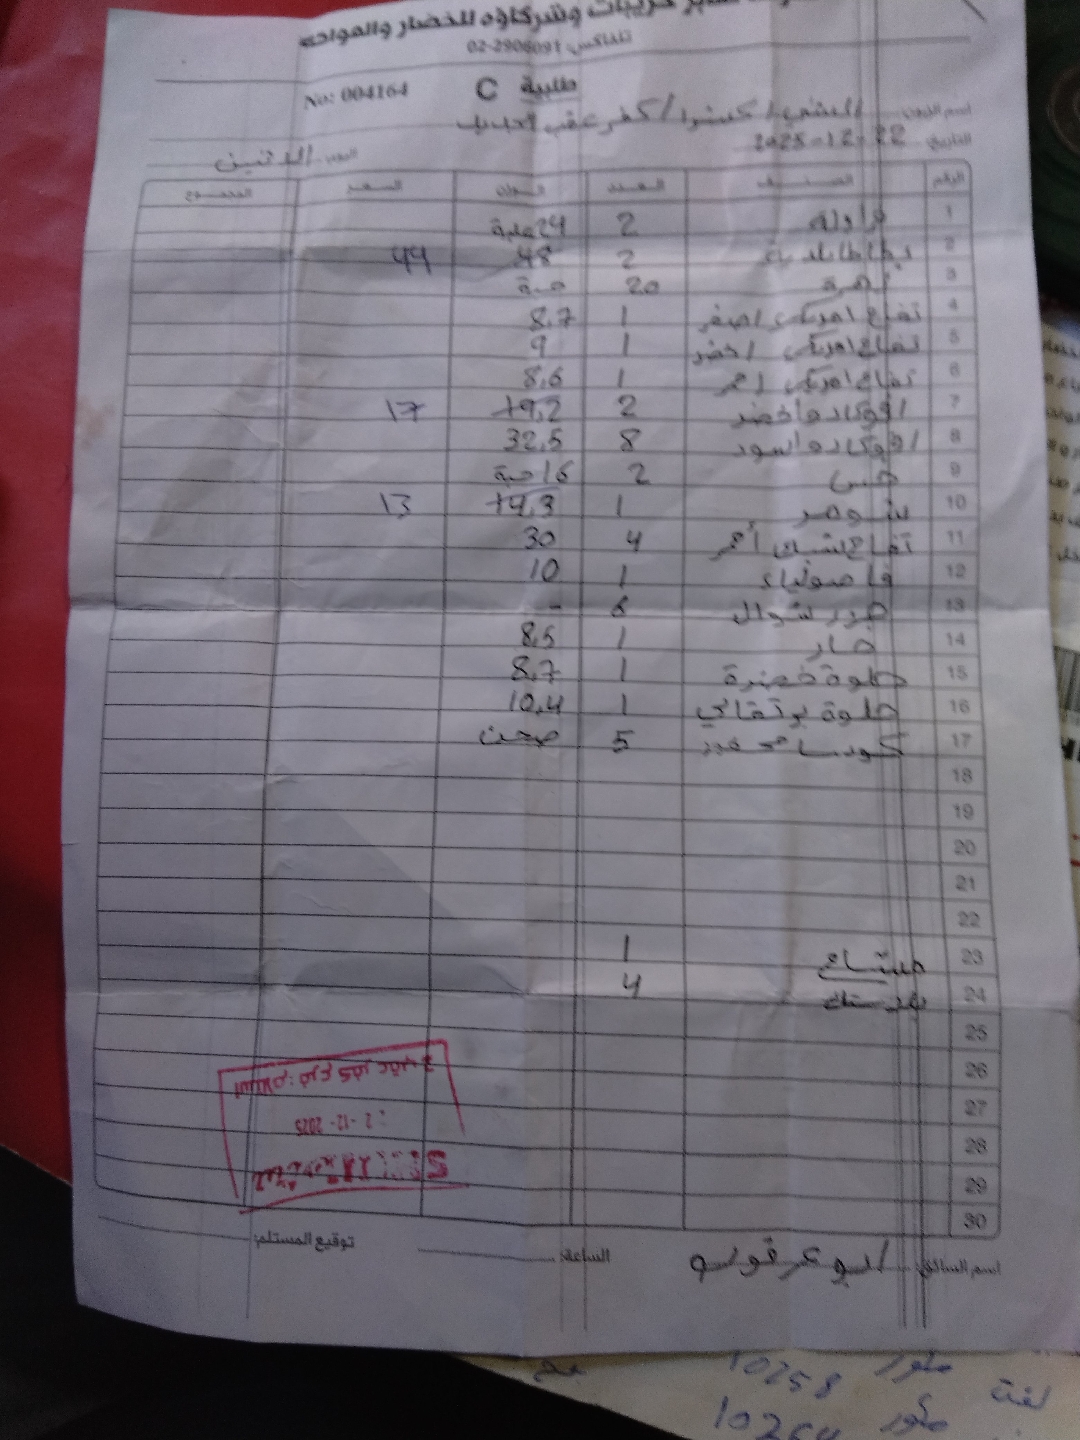 وشركاؤه للخضار والفواكه
تلفاكس 02-2906091
طلبية C
No: 004164
اسم الزبون:
التاريخ: 2025-12-22 اليوم: الاثنين
الرقم الصنف العدد الوزن السعر المجموع
1 فراولة 2 24 علبة
2 بطاطا 2 48 44
3 زهرة 20 حبة
4 تفاح امريكي اصفر 1 8,7
5 تفاح امريكي اخضر 1 9
6 تفاح امريكي احمر 1 8,6
7 افوكادو اخضر 2 19,2 17
8 افوكادو اسود 8 32,5
9 خس 2 16 حبة
10 شومر 1 14,3 13
11 تفاح أحمر 4 30
12 فاصولياء 1 10
13 6 -
14 خيار 1 8,5
15 حلوة خضرة 1 8,7
16 حلوة برتقالي 1 10,4
17 كوسا محفور 5 صحن
18
19
20
21
22
23 مشتاح 1
24 بلاستك 4
25
26
27
28
29
30
اسم السائق: ابو عرقوب الساعة: توقيع المستلم:
10258